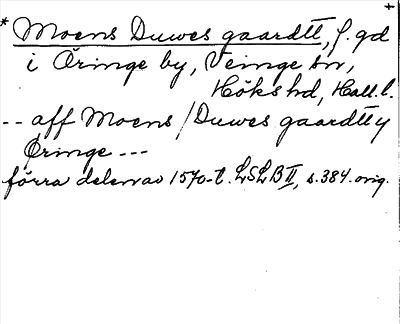 * Moens Duwes gaardtt, f. gd +
i Öringe by, Veinge sn,
Höks hd, Hall. l.
-- aff Moens / Duwes gaardtt y
Øringe ---
förra delen av 1570-t. LSLB II, s. 384. orig.